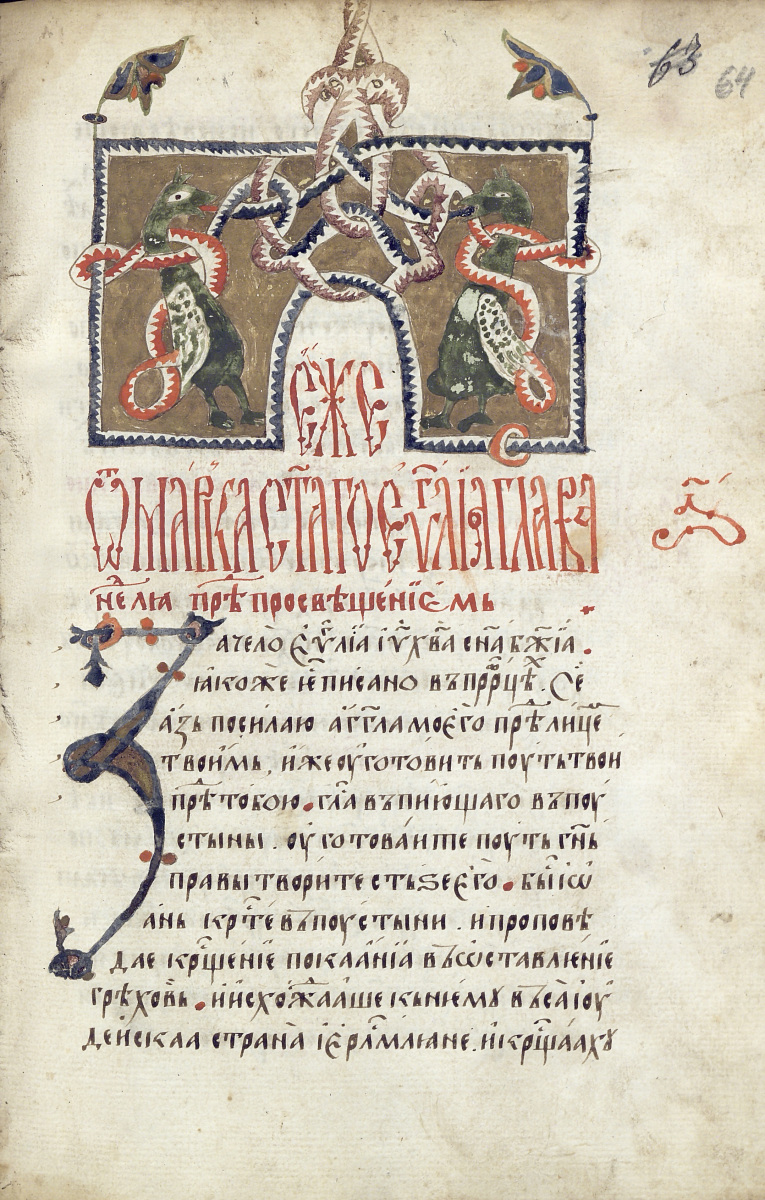 63
64
е҆же
ѿ марка ст҃аго еѵⷢ҇лїа глава
а҃
неⷣлꙗ прѣⷣ просвѣщенїемь
Зачело еѵⷢ҇лїа іѵ҃ хв҃а сн҃а бж҃їа.
ꙗкоже еⷭ҇ писано въ прⷪ҇рцѣⷯ. Се
азь посилаю агг҃ла моего прѣⷣ лицеⷨ
твоимь, иже оуготовить поуть твои
прѣⷣ тобою. гл҃а въпиющаго въ поу
стыны. оуготоваите поуть гн҃ь
правы творите стьѕе его. быⷭ҇ їѡ
ань крⷭ҇те въ поустыни. и проповѣ
дае крⷭ҇щенїе покаанїа въ ѡставленїе
грѣховь. и исхожⷣааше кь нїему въса їоу
деиска страна їерⷭ҇лмлꙗне. и крⷭ҇щаахꙋ